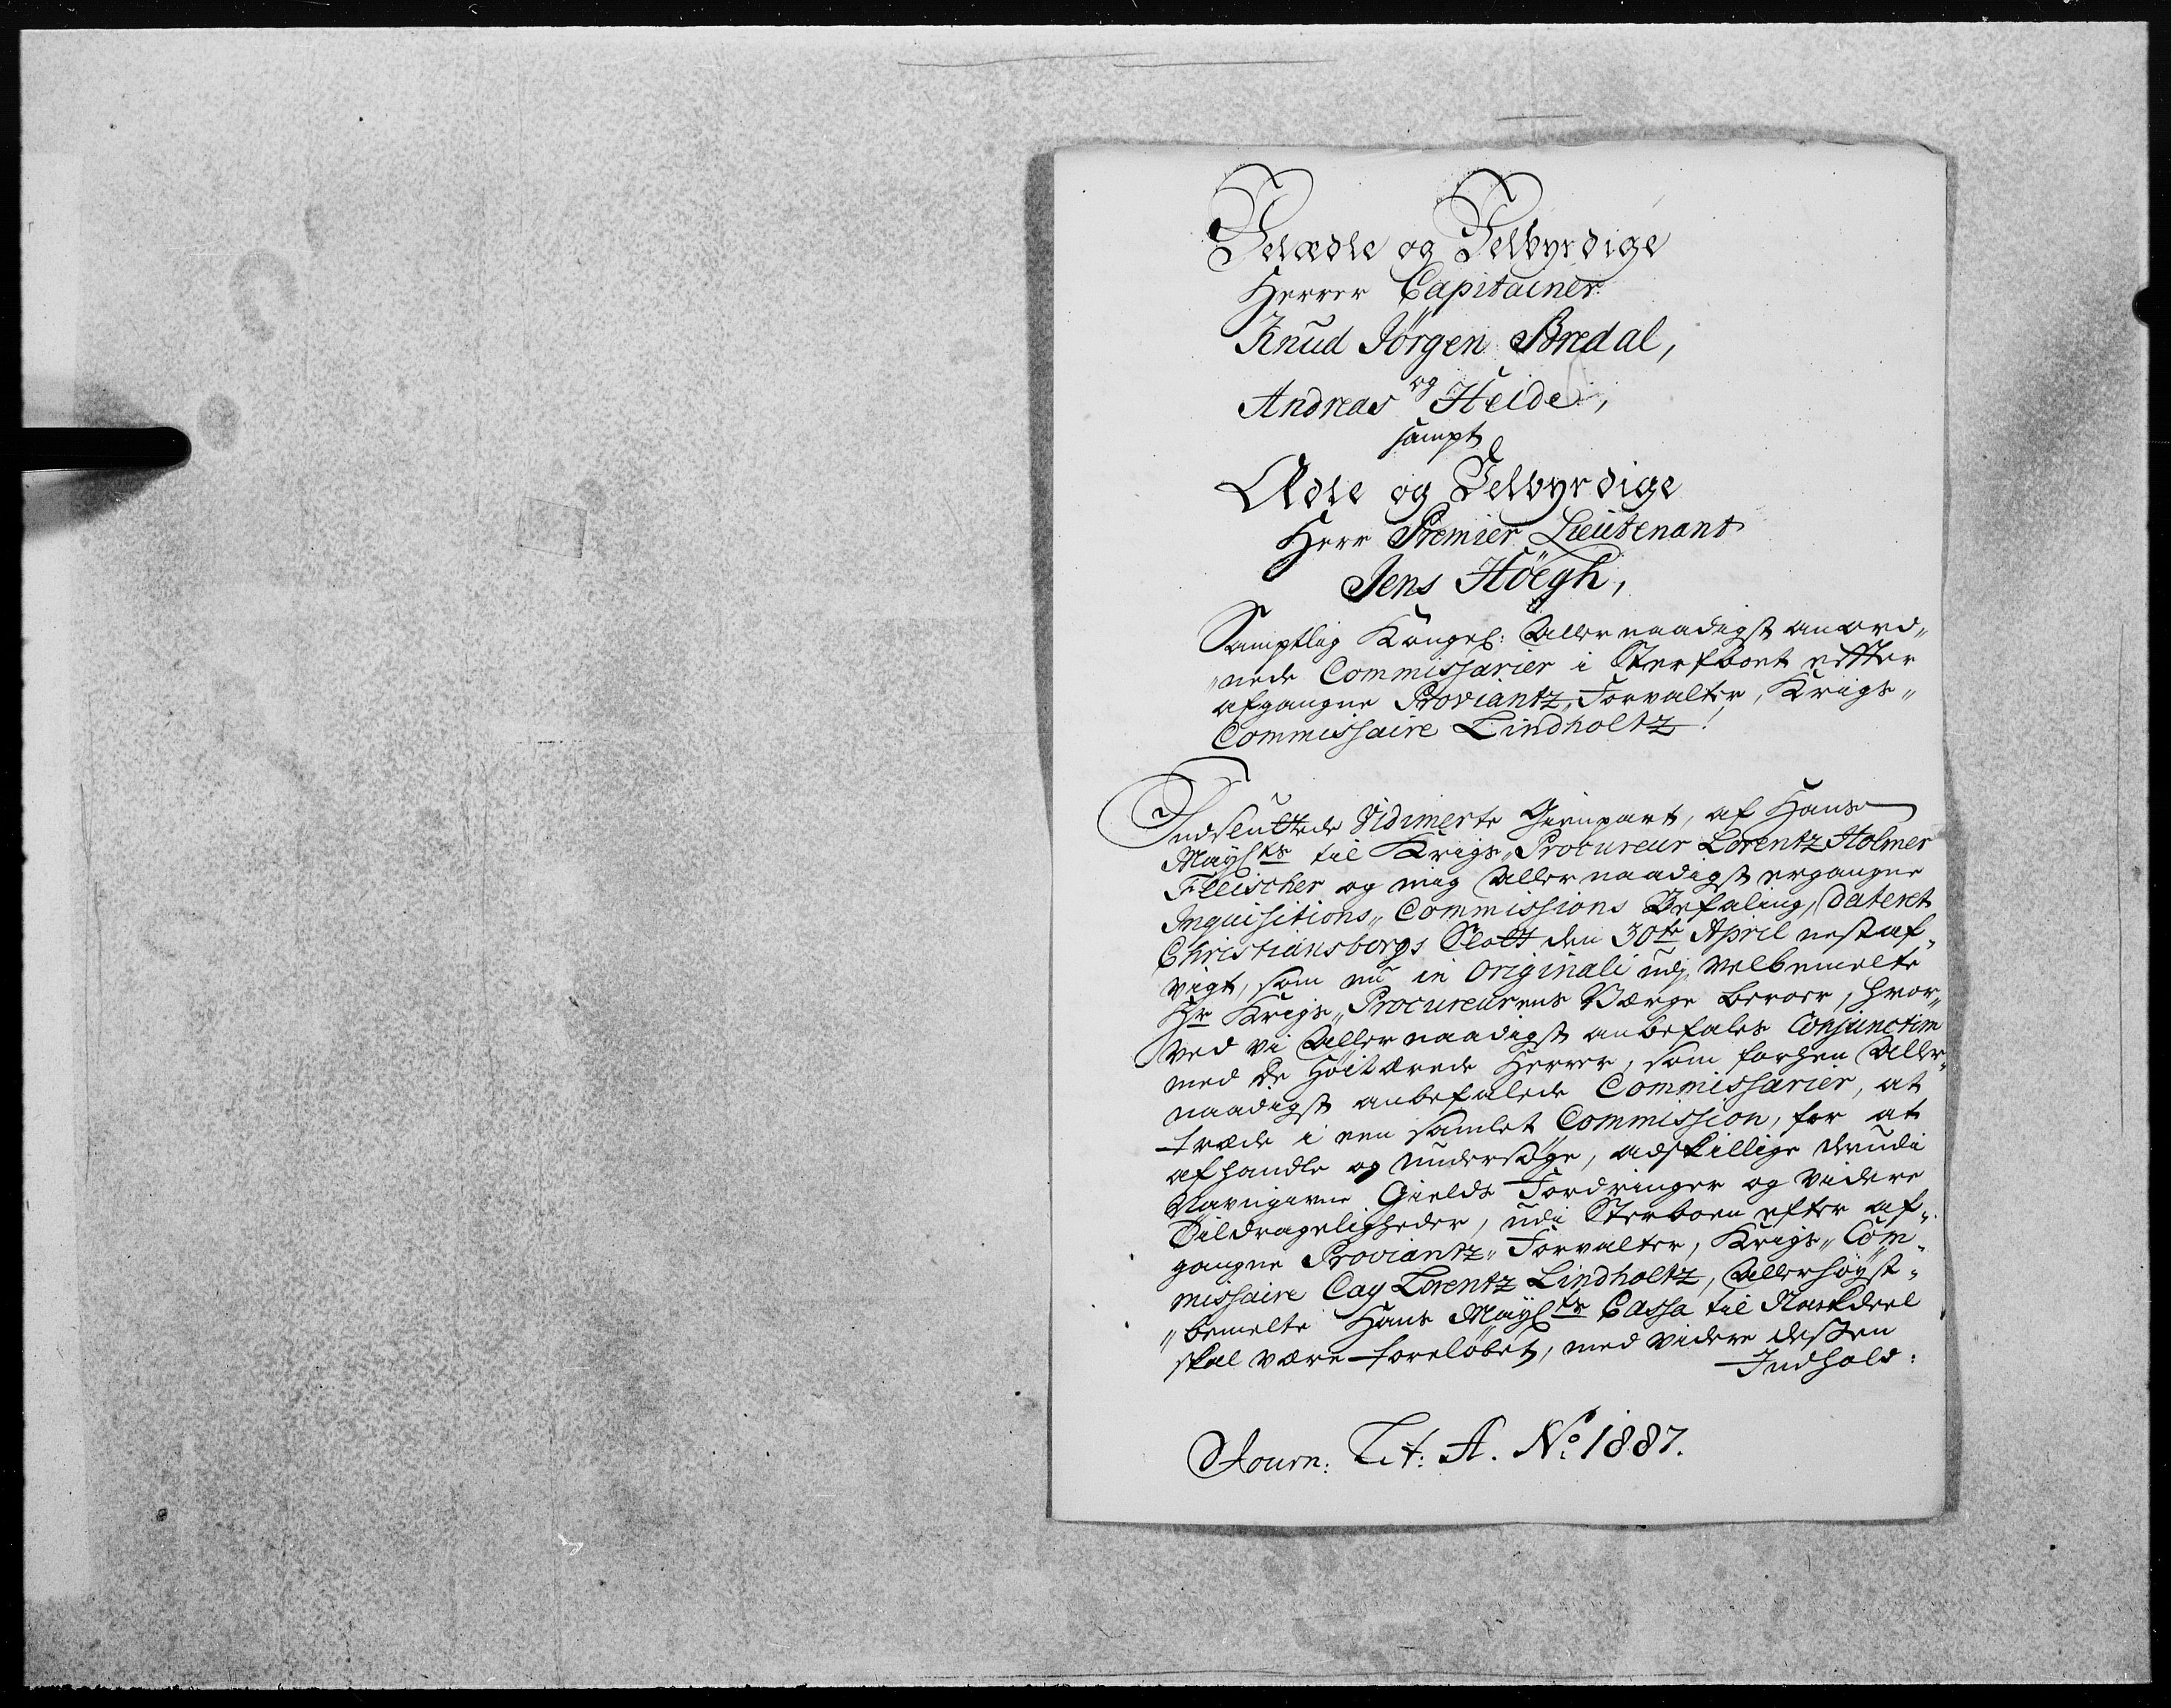 Velædle og Velbyrdige
Herrer Capitainer
Knud Jørgen Bredal,
og
Andreas Heide,
sampt
Ædle og Velbyrdige
Herr Premier Lieutenant
Jens Höegh,
Samptlig Kongel: Allernaadigst anord„
„nede Commissarier i Sterfboet effter
afgangne Proviantz, Forvalter, Krigs„
Commissaire Lindholtz!
Indsluttede Vidimerte Gienpart, af Hans
Mayts til Krigs„Procureur Lorentz Holmer
Fleischer og mig Allernaadigst ergangne
Inquisitions„Commissions Befaling, dateret
Christiansborgs Slott den 30te April nestaf„
vigt, som nu in Originali udj Velbemelte
Hr Krigs„Procureurens Værge beroer, hvor„
ved vi Allernaadigst anbefales Conjunctim
med de Høitærede Herrer, som forhen Aller„
naadigst anbefalede Commissarier, at
træde i een samlet Commission, for at
afhandle og undersøge, adskillige derudi
Navngivne Gields Fordringer og videre
Tildrageligheder, udi Sterboen efter af„
gangne Proviantz„Forvalter, Krigs„Com„
missaire Cay Lorentz Lindholtz, Allerhøyst„
„bemelte Hans Mayts Cassa til Nachdeel
skal være foreløbet, med videre dessen
Indhold:
Journ: Lit: A. No. 1887.